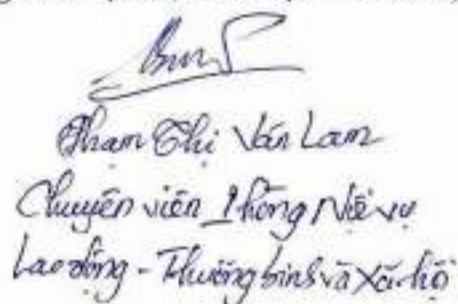 Phạm Thị Vân Lam
Chuyên viên Phòng Nội vụ
Lao động - Thương binh và Xã hội